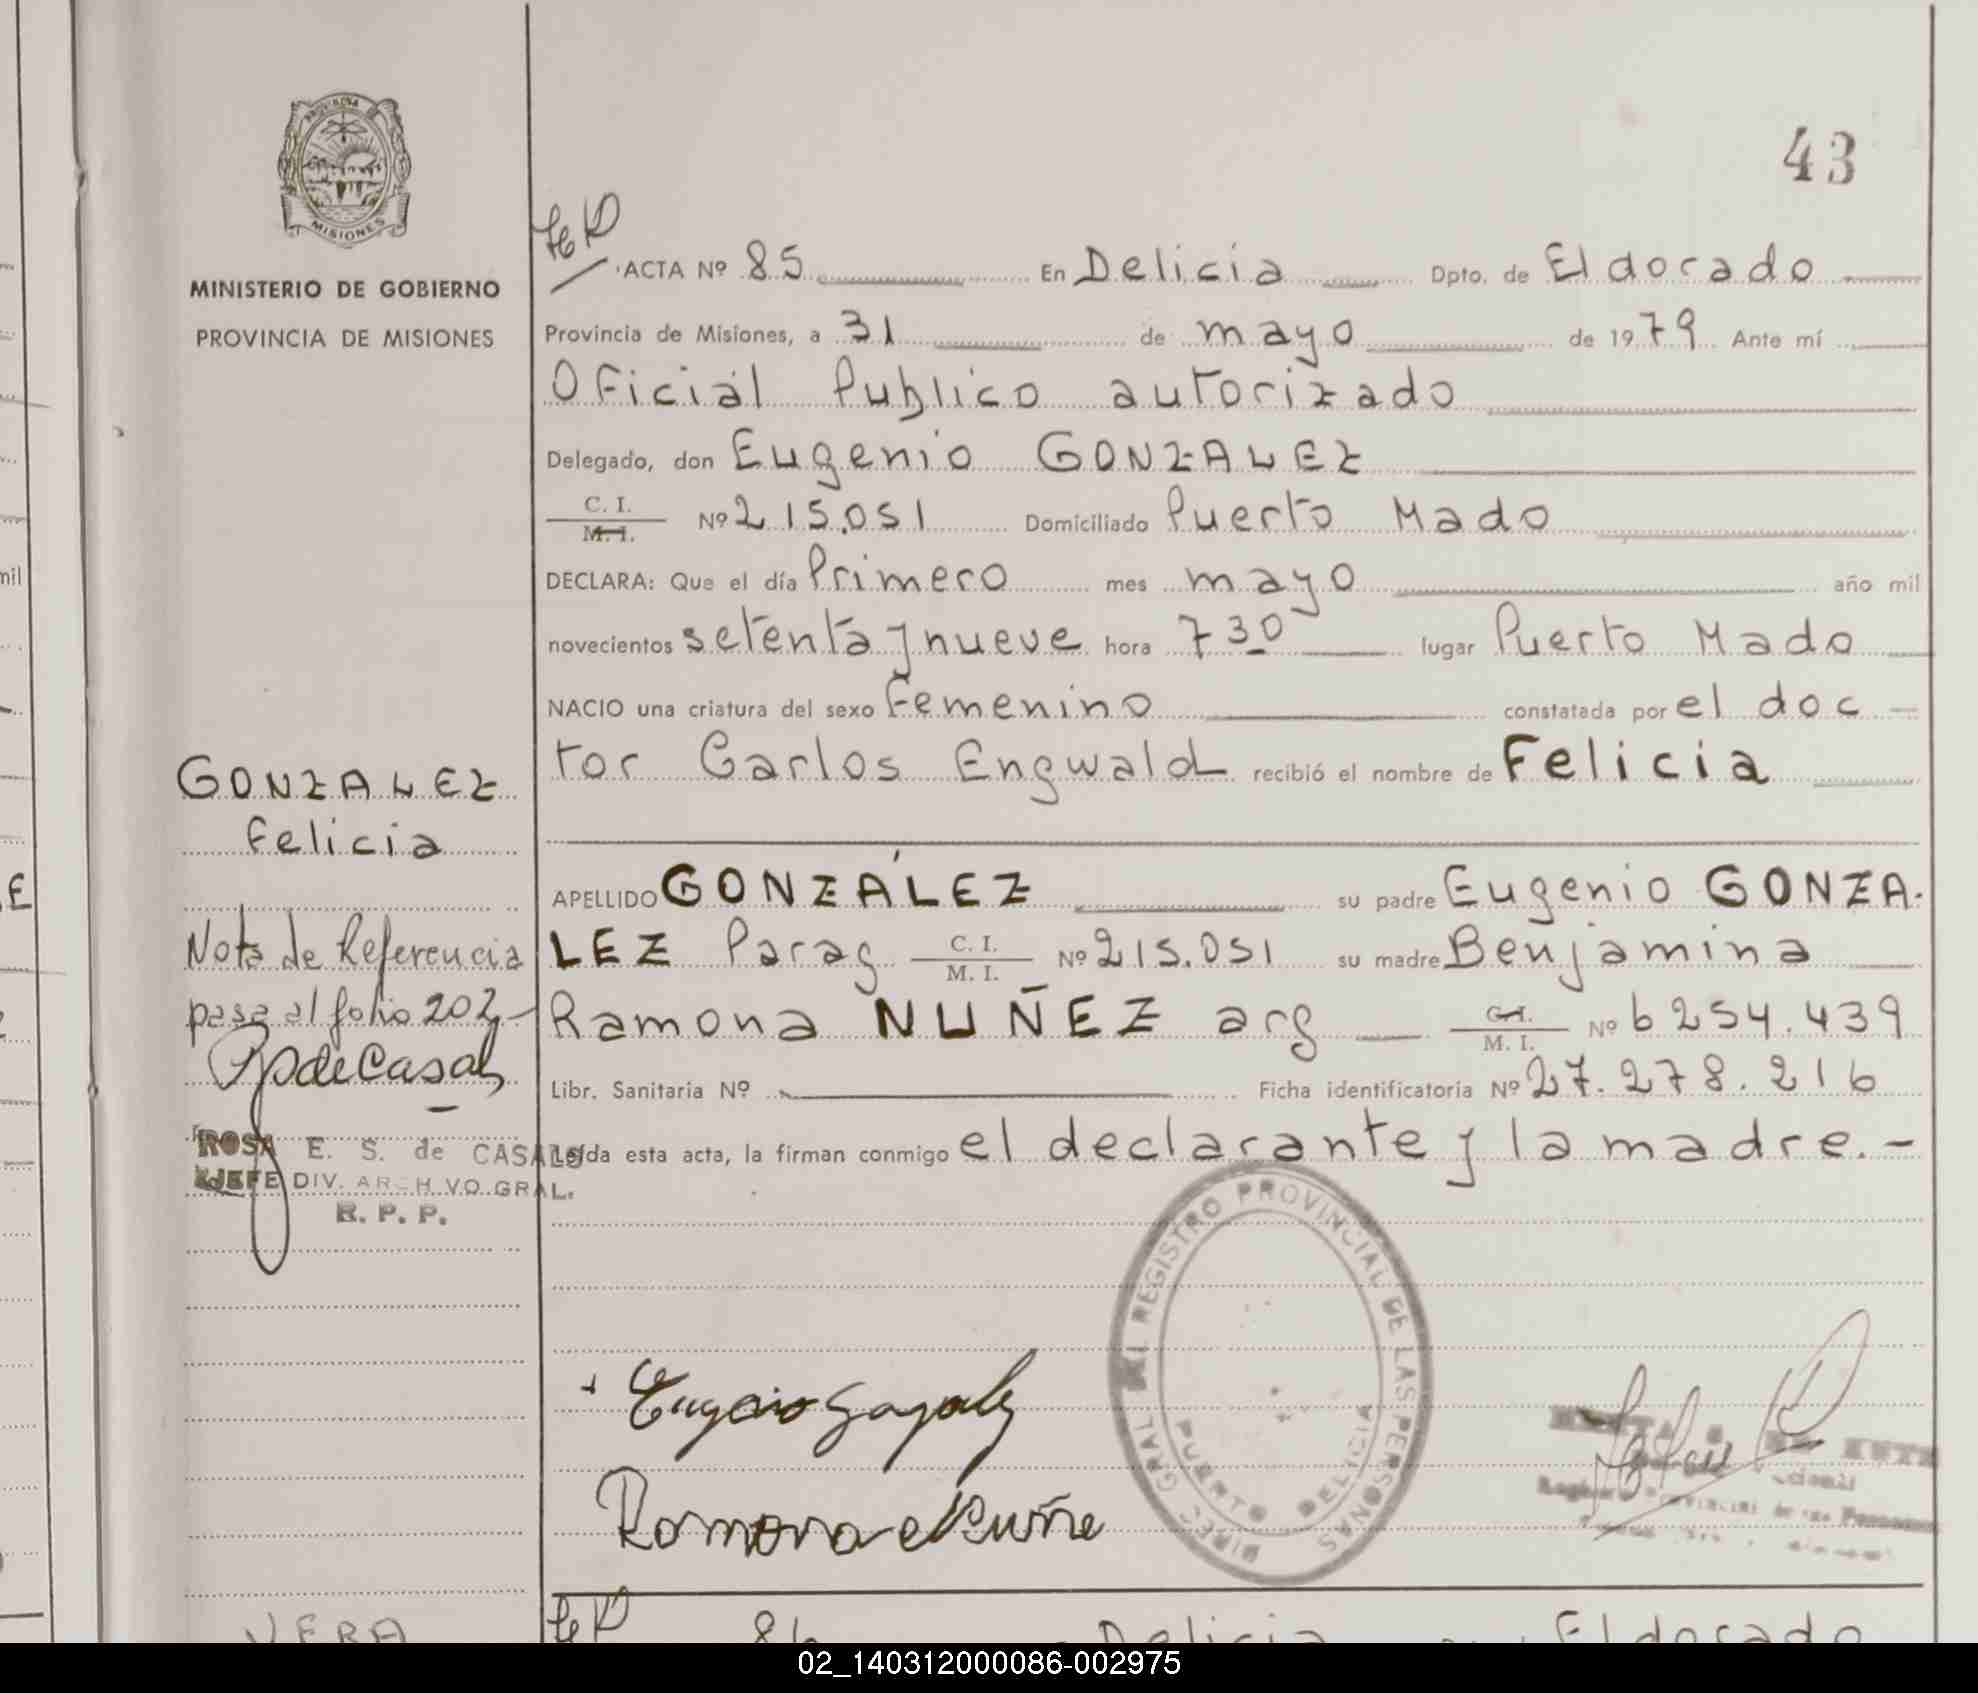 43
PROVINCIA
MISIONES
MINISTERIO DE GOBIERNO
PROVINCIA DE MISIONES
ACTA Nº 85 En Delicia Dpto. de Eldorado
Provincia de Misiones, a 31 de mayo de 1979 Ante mí
Oficial Publico autorizado
Delegado, don Eugenio GONZALEZ
C. I.
M. I. Nº 215.051 Domiciliado Puerto Mado
DECLARA: Que el día Primero mes mayo año mil
novecientos setenta y nueve hora 7 30 lugar Puerto Mado
NACIO una criatura del sexo Femenino constatada por el doc
tor Carlos Engwald recibió el nombre de Felicia
GONZALEZ
Felicia
APELLIDO GONZÁLEZ su padre Eugenio GONZA.
LEZ Parag C. I.
M. I. Nº 215.051 su madre Benjamina
Ramona NUÑEZ arg C. I.
M. I. Nº 6254.439
Libr. Sanitaria Nº Ficha identificatoria Nº 27.278.216
Leída esta acta, la firman conmigo el declarante y la madre.-
Nota de Referencia
pasa al folio 202-
RpdeCasals
ROSA E. S. de CASALS
JEFE DIV. ARCHIVO GRAL.
R. P. P.
Eugenio Gonzalez
Ramona Nuñe
DIREC. GRAL. DEL REGISTRO PROVINCIAL DE LAS PERSONAS
PUERTO DELICIA
mil
E
VERA
86 Delicia Eldorado
02_140312000086-002975